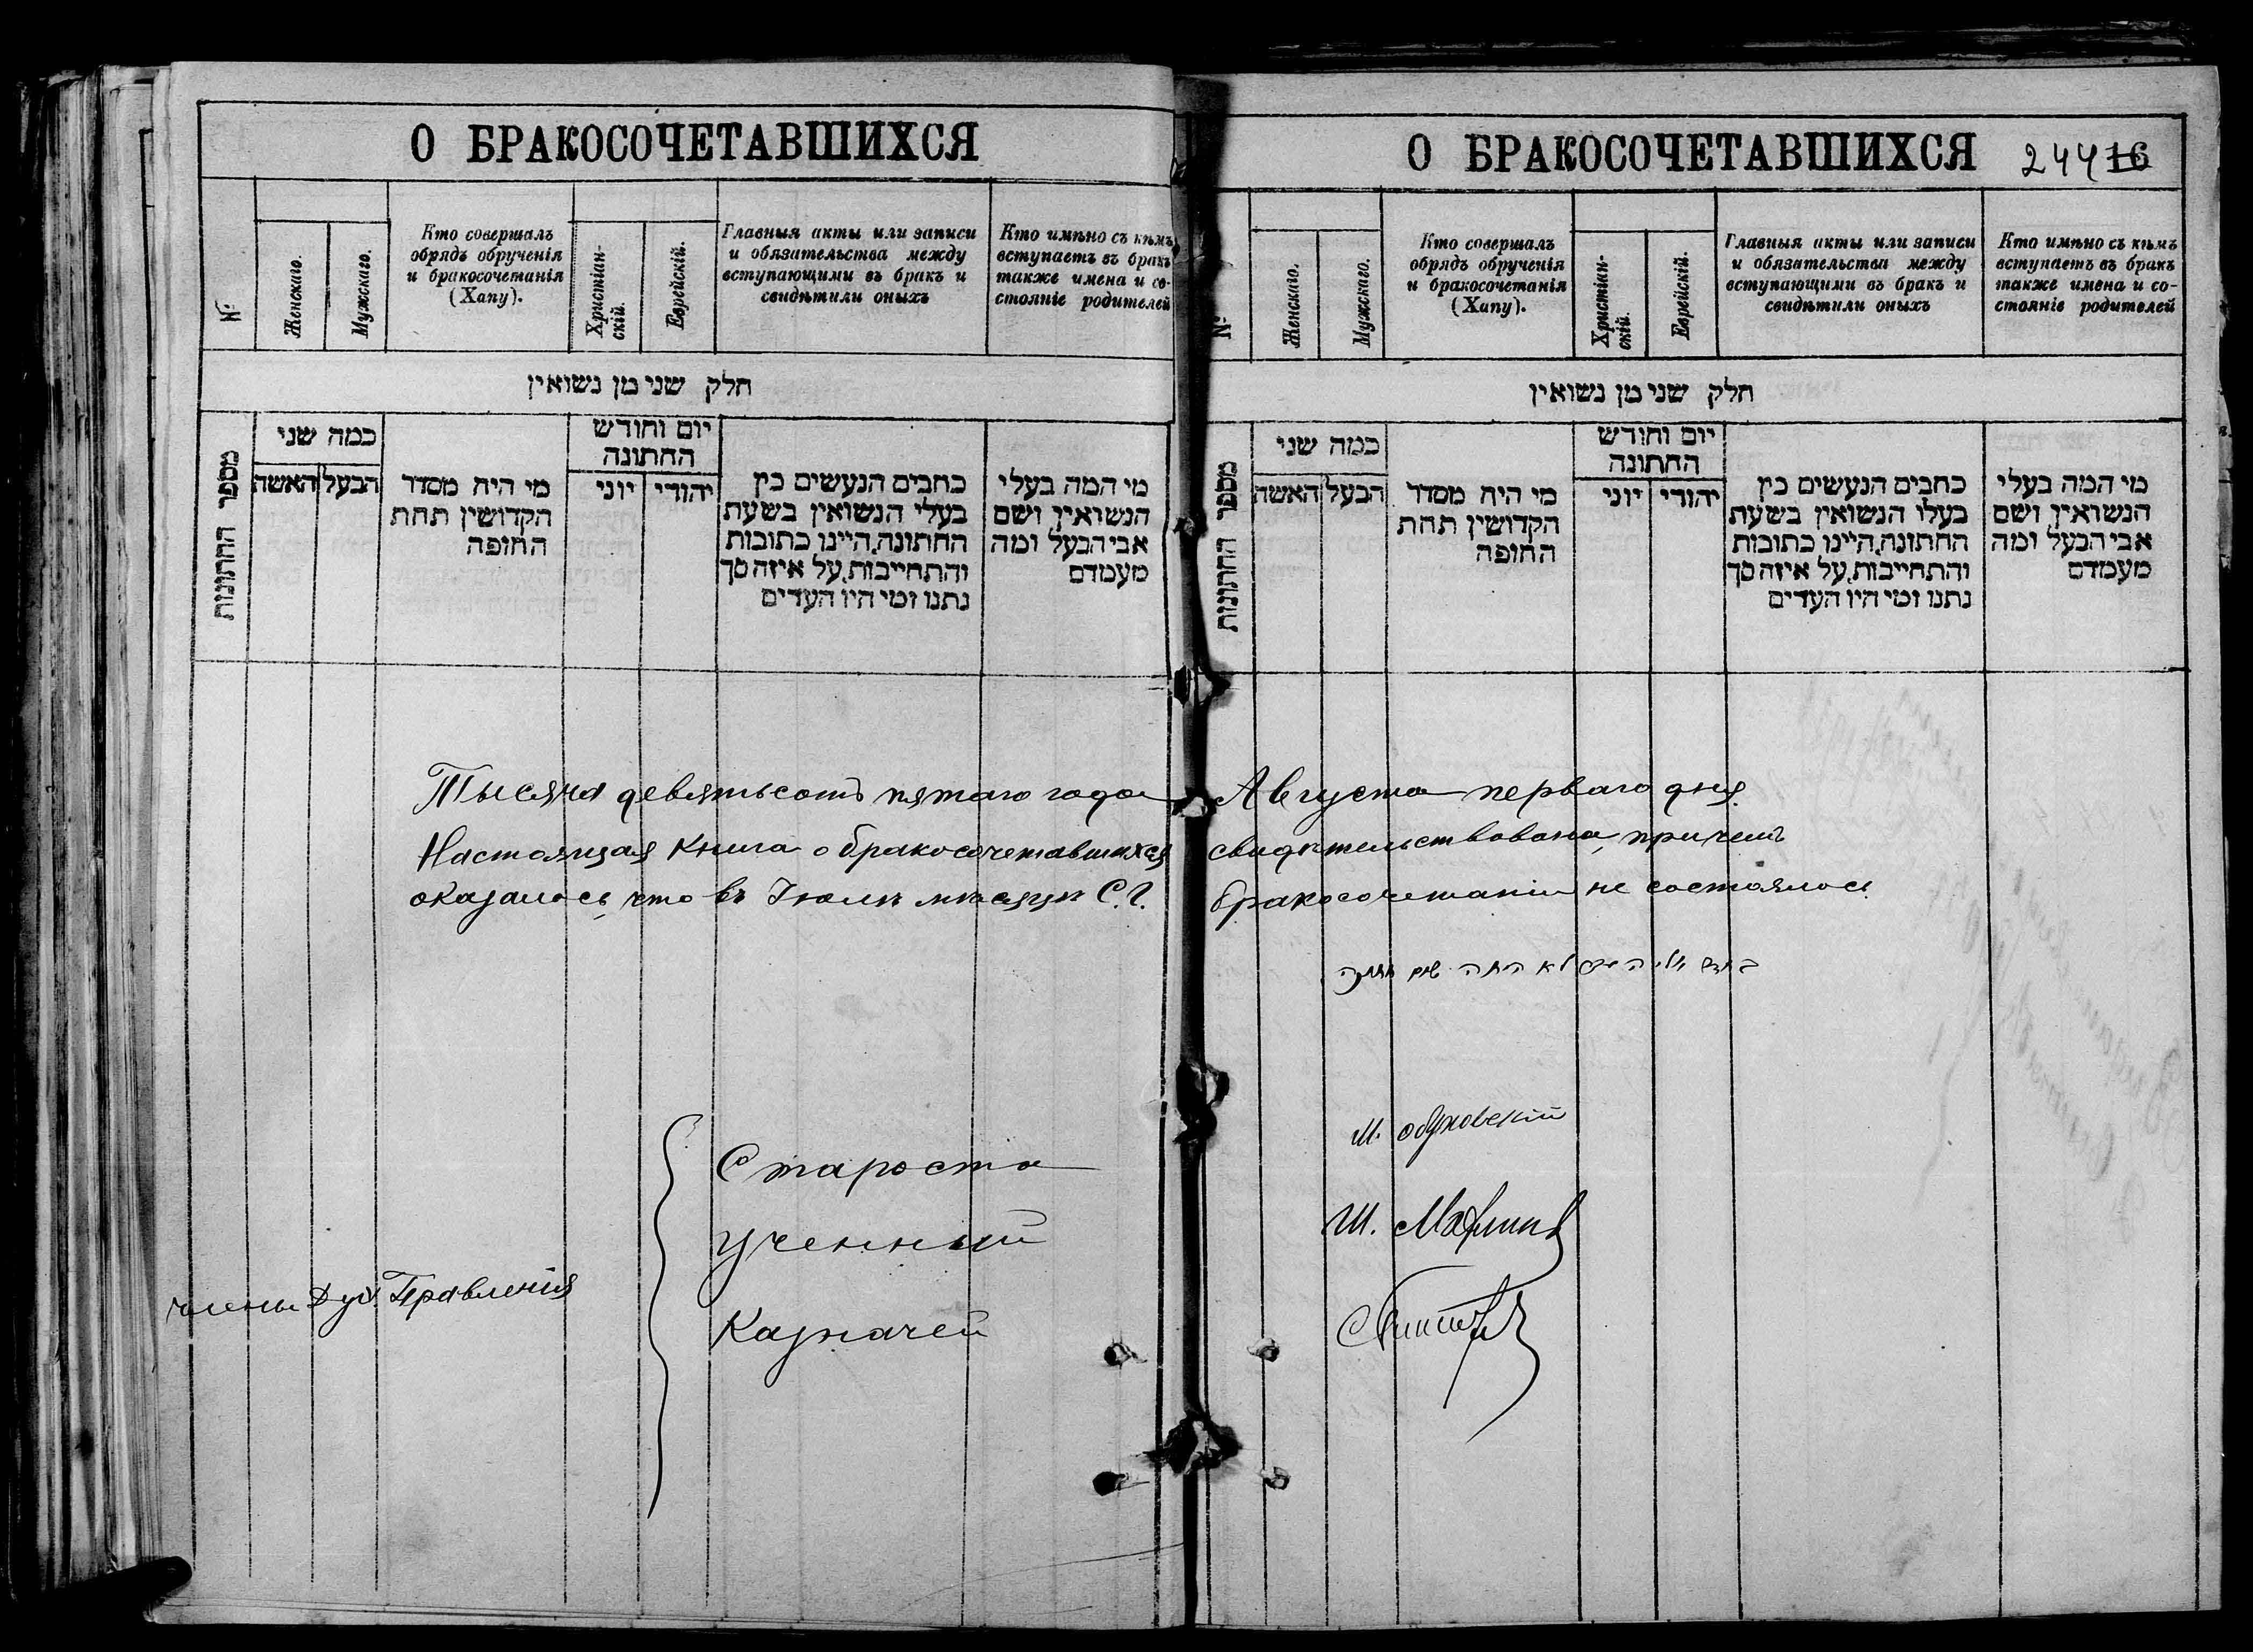 О БРАКОСОЧЕТАВШИХСЯ
№
Женскаго.
Мужскаго.
Кто совершалъ
обрядъ обрученія
и бракосочетанія
(Хапу).
Христіан-
скій.
Еврейскій.
Главныя акты или записи
и обязательства между
вступающими въ бракъ и
свидѣтили оныхъ
Кто имѣно съ кѣмъ
вступаетъ въ бракъ
также имена и со-
стояніе родителей
חלק שני מן נשואין
מספר החתונות
כמה שני
הבעל
האשה
מי היה מסדר
הקדושין תחת
החופה
יום וחודש
החתונה
יהודי
יוני
כתבים הנעשים בין
בעלי הנשואין בשעת
החתונה,היינו כתובות
והתחייבות,על איזה סך
נתנו ומי היו העדים
מי המה בעלי
הנשואין, ושם
אבי הבעל ומה
מעמדם
О БРАКОСОЧЕТАВШИХСЯ
244 16
№
Женскаго.
Мужскаго.
Кто совершалъ
обрядъ обрученія
и бракосочетанія
(Хапу).
Христіан-
скій.
Еврейскій.
Главныя акты или записи
и обязательства между
вступающими въ бракъ и
свидѣтили оныхъ
Кто имѣно съ кѣмъ
вступаетъ въ бракъ
также имена и со-
стояніе родителей
חלק שני מן נשואין
מספר החתונות
כמה שני
הבעל
האשה
מי היה מסדר
הקדושין תחת
החופה
יום וחודש
החתונה
יהודי
יוני
כתבים הנעשים בין
בעלי הנשואין בשעת
החתונה,היינו כתובות
והתחייבות,על איזה סך
נתנו ומי היו העדים
מי המה בעלי
הנשואין, ושם
אבי הבעל ומה
מעמדם
Тысяча девятьсотъ пятаго года Августа перваго дня
Настоящая Книга о бракосочетавшихся свидѣтельствована, причемъ
оказалось, что въ Іюлѣ мѣсяцѣ С.Г. бракосочетаніи не состоялось.
לא היתה שום חתונה
члены Дух. Правленія
Староста
М. Обуховскій
Ученый
Ш.
Казначей